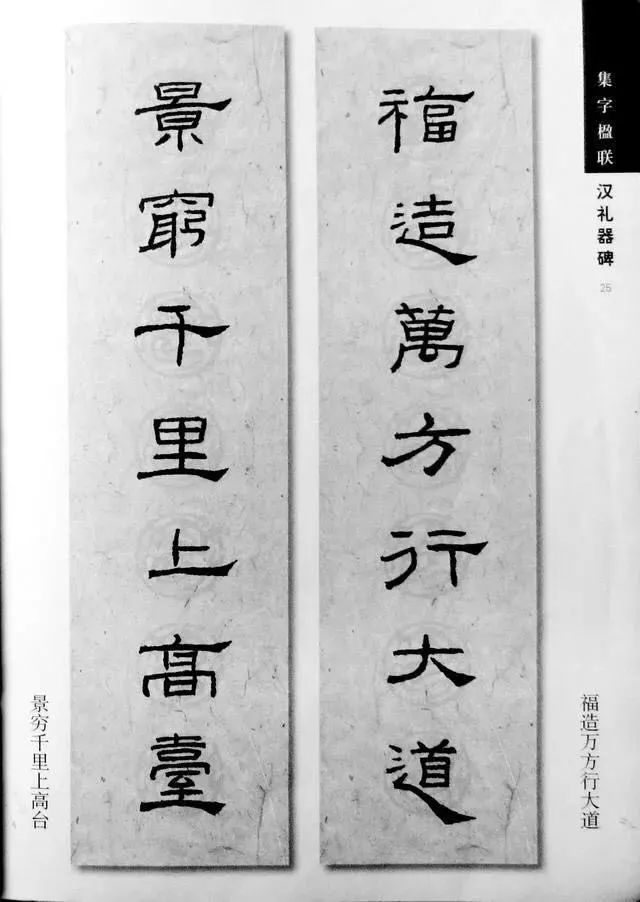 集字楹联
汉礼器碑
25
福造萬方行大道
景窮千里上高臺
福造万方行大道
景穷千里上高台